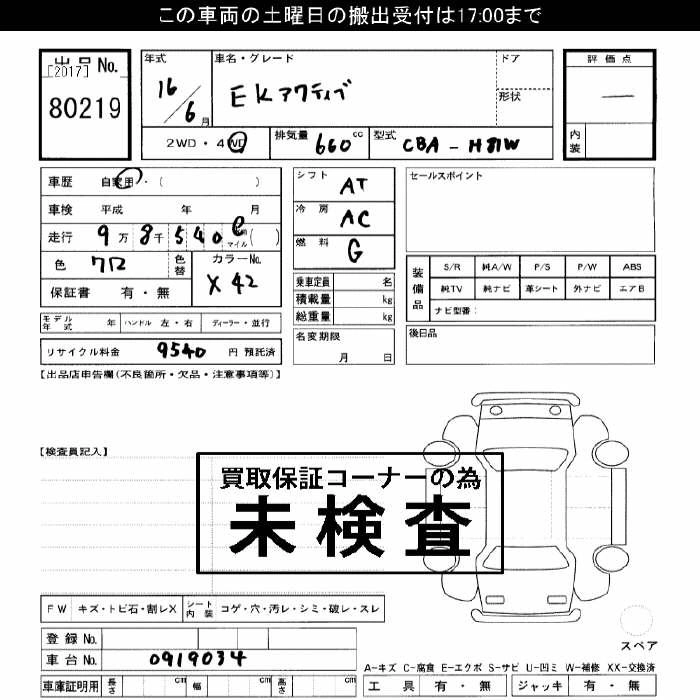 この車両の土曜日の搬出受付は17:00まで
出品 No.
[2017]
80219
年式 16/6月
車名・グレード EKアクティブ
ドア
形状
2WD・4WD 排気量 660cc 型式 CBA-H81W
評価点
—
内装
車歴 自家用・( )
車検 平成 年 月
走行 9万8千540 マイル( )
色 クロ 色替 カラーNo. X42
保証書 有・無
モデル年式 年 ハンドル 左・右 ディーラー・並行
リサイクル料金 9540 円 預託済
シフト AT
冷房 AC
燃料 G
乗車定員 名
積載量 kg
総重量 kg
名変期限
月 日
セールスポイント
装備品 S/R 純A/W P/S P/W ABS
純TV 純ナビ 革シート 外ナビ エアB
ナビ型番:
後日品
【出品店申告欄(不良箇所・欠品・注意事項等)】
【検査員記入】
買取保証コーナーの為
未検査
FW キズ・トビ石・割レX シート内装 コゲ・穴・汚レ・シミ・破レ・スレ
登録 No.
車台 No. 0919034
車庫証明用 長さ cm 幅 cm 高さ cm
スペア
A-キズ C-腐食 E-エクボ S-サビ U-凹ミ W-補修 XX-交換済
工具 有・無 ジャッキ 有・無